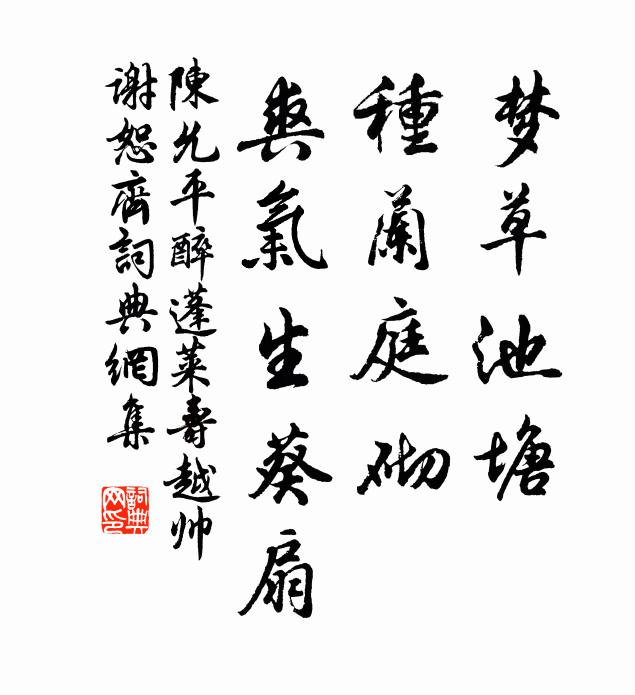 梦草池塘
種蘭庭砌
爽氣生葵扇
陳允平醉蓬萊壽越帅
謝恕齊詞典網集
詞典网印